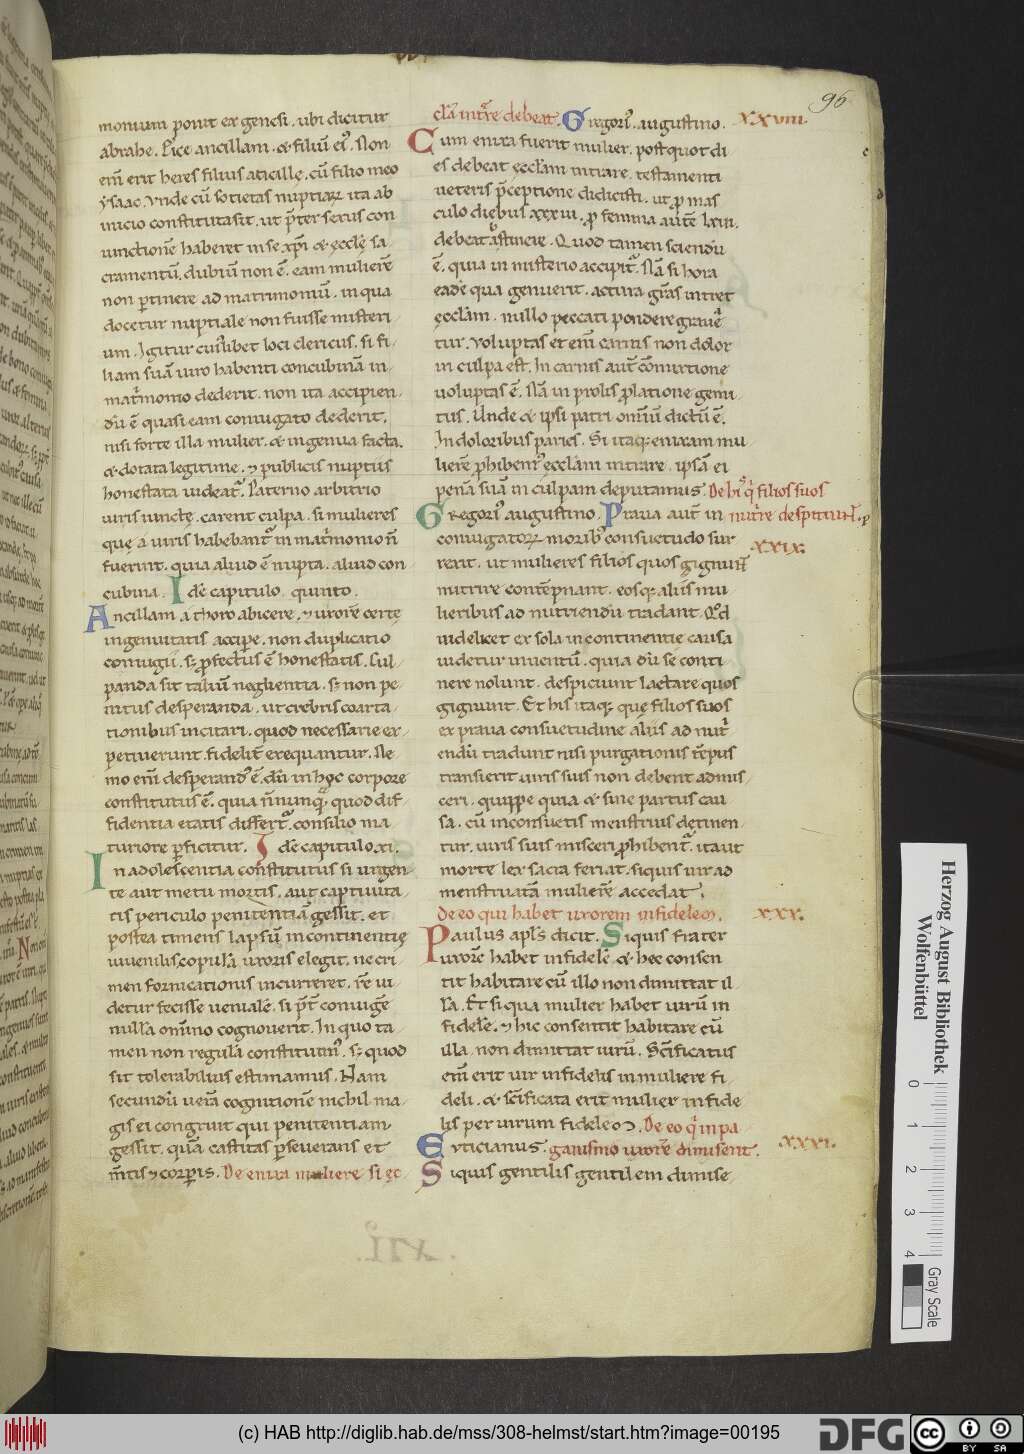 96
monium posuit ex genesi. ubi dicitur
abrahe. Eice ancillam. & filiũ ei᾽. Non
em̃ erit heres filius ancillę. cũ filio meo
ysaac. Vnde cũ societas nuptiaꝝ ita ab
inicio constituta sit. ut p̃ter sexus con
iunctionẽ haberet in se xp̃i & ęcclę sa
cramentũ. dubiũ non ẽ. eam mulierẽ
non ꝑtinere ad matrimoniũ. in qua
docetur nuptiale non fuisse misteri
um. Igitur cui᾽libet loci clericus. si fi
liam suã uiro habenti concubinã in
matr̃monio dederit. non ita accipien
dũ ẽ quasi eam coniugato dederit.
nisi forte illa mulier. & ingenua facta.
& dotata legitime. ⁊ publicis nuptiis
honestata uideat᷑. Paterno arbitrio
uiris iunctę. carent culpa. si mulieres
quę a uiris habebant᷑ in matr̃monio ñ
fuerunt. quia aliud ẽ nupta. aliud con
cubina. Idẽ capitulo quinto.
Ancillam a thoro abicere. ⁊ uxorẽ certę
ingenuitatis accipe. non duplicatio
coniugii. s; ꝓfectus ẽ honestatis. Cul
panda sit taliũ neglientia. s; non pe
nitus desperanda. ut crebris coarta
tionibus incitari. quod necessarie ex
petiuerunt. fidelit̃ exequantur. Ne
mo em̃ desperand᾽ ẽ. dũ in hoc corpore
constitutus ẽ. quia ñnunq̃. quod dif
fidentia etatis differt᷑. consilio ma
turiore ꝑficitur. Idẽ capitulo.xi.
In adolescentia constitutus si urgen
te aut metu mortis. aut captiuita
tis periculo penitentiã gessit. et
postea timens lapsũ incontinentię
iuuenilis. copulã uxoris elegit. ne cri
men fornicationis incurreret. rẽ ui
detur fecisse uenialẽ. si p̃t̃ coniugẽ
nullã om̃ino cognouerit. In quo ta
men non regulã constituim᾽. s; quod
sit tolerabilius estimamus. Nam
secundũ uerã cognitionẽ nichil ma
gis ei congruit qui penitentiam
gessit. quã castitas ꝑseuerans et
m̃tis ⁊ corꝑis. De enixa muliere si ęc
cl̃ã intr̃re debeat. Gregori᾽. augustino. XXVIII.
Cum enixa fuerit mulier. post quot di
es debeat ęccl̃am intrare. testamenti
ueteris p̃ceptione didicisti. ut ꝓ mas
culo diebus xxxiii. ꝓ femina autẽ lxvi.
debeat abstinere. Quod tamen sciendũ
ẽ. quia in misterio accipit᷑. Nã si hora
eadẽ qua genuerit. actura gr̃as intret
ęccl̃am. nullo peccati pondere graua
tur. Voluptas et em̃ carnis non dolor
in culpa est. In carnis aut̃ cõmixtione
uoluptas ẽ. Nã in prolis ꝓlatione gemi
tus. Unde & ipsi patri om̃iũ dictũ ẽ.
In doloribus paries. Si itaq; enixam mu
lierẽ ꝓhibem᾽ ęccl̃am intrare. ipsã ei
penã suã in culpam deputamus. De hi᾽ q̃ filios suos
Gregori᾽ augustino. Praua aut̃ in nutr̃re despiciunt̃.
coniugatoꝝ morib᾽ consuetudo sur XXIX.
rexit. ut mulieres filios quos gignunt̃
nutrire contẽpnant. eosq; aliis mu
lieribus ad nutriendũ tradant. Qd̃
uidelicet ex sola incontinentie causa
uidetur inuentũ. quia dũ se conti
nere nolunt. despiciunt lactare quos
gignunt. Et his itaq; que filios suos
ex praua consuetudine aliis ad nutr̃
endũ tradunt nisi purgationis tẽpus
transierit uiris suis non debent admis
ceri. quippe quia & sine partus cau
sa. cũ in consuetis menstruis dętinen
tur. uiris suis misceri ꝓhibent᷑. ita ut
morte lex sacra feriat. si quis uir ad
menstruatã mulierẽ accedat.
de eo qui habet uxorem infidelem. XXX.
Paulus apl̃s dicit. Siquis frater
uxorẽ habet infidelẽ. & hec consen
tit habitare cũ illo non dimittat il
lã. Et si qua mulier habet uirũ in
fidelẽ. ⁊ hic consentit habitare cũ
illa. non dimittat uirũ. Sc̃ificatus
em̃ erit uir infidelis in muliere fi
deli. & sc̃ificata erit mulier infide
lis per uirum fidelem. De eo q̃ in pa
Evticianus. ganismo uxorẽ dimiserit. XXXI.
Siquis gentilis gentilem dimise
Herzog August Bibliothek
Wolfenbüttel
0 1 2 3 4
Gray Scale
(c) HAB http://diglib.hab.de/mss/308-helmst/start.htm?image=00195
DFG
cc
BY SA